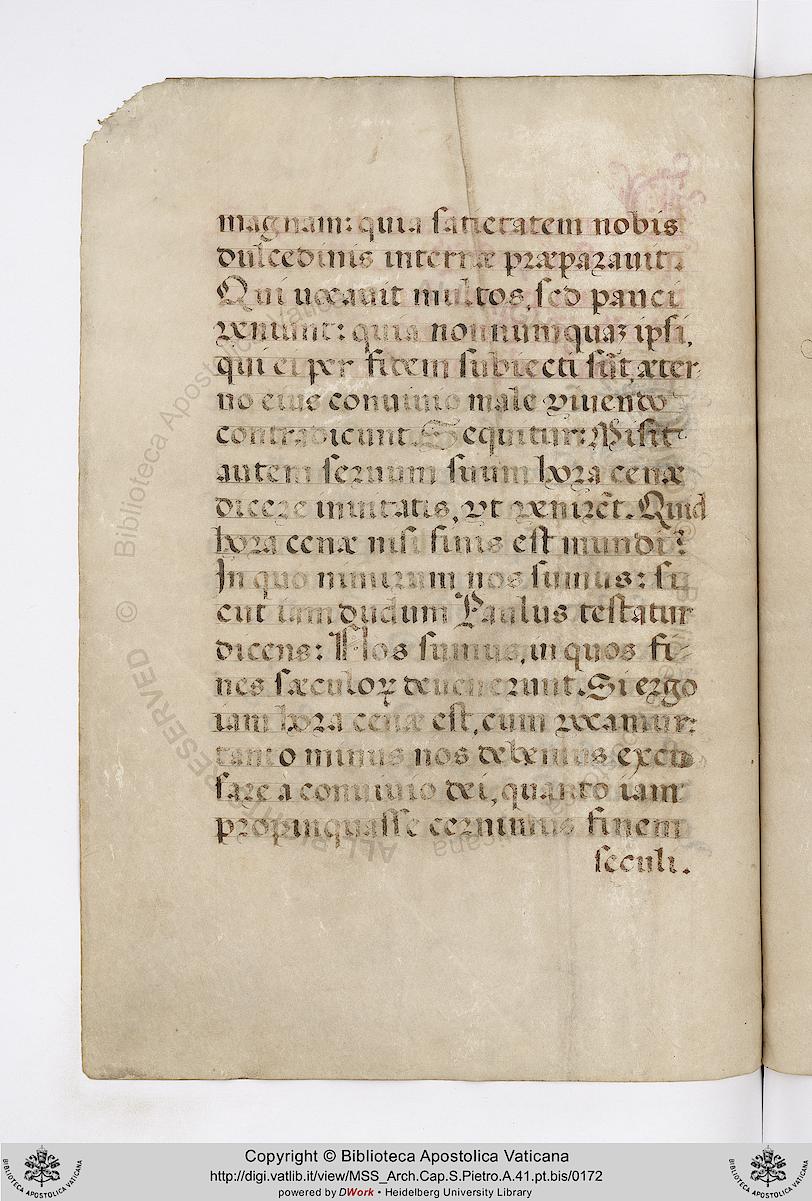 magnam: quia satietatem nobis
dulcedinis internæ præparauit.
Qui uocauit multos, sed pauci
veniunt: quia nonnumquaʒ ipsi,
qui ei per fidem subiecti sũt, æter
no eius conuiuio male viuendo
contradicunt. Sequitur: Misit
autem seruum suum hora cenæ
dicere inuitatis, vt venirẽt. Quid
hora cenæ nisi finis est mundi?
In quo nimirum nos sumus: si
cut iam dudum Paulus testatur
dicens: Nos sumus, in quos fi-
nes sæculoꝝ deuenerunt. Si ergo
iam hora cenæ est, cum vocamur:
tanto minus nos debemus excu
sare a conuiuio dei, quanto iam
propinquasse cernimus finem
seculi.
© Biblioteca Apostolica Vaticana
ALL RIGHTS RESERVED
BIBLIOTECA APOSTOLICA VATICANA
Copyright © Biblioteca Apostolica Vaticana
http://digi.vatlib.it/view/MSS_Arch.Cap.S.Pietro.A.41.pt.bis/0172
powered by DWork • Heidelberg University Library
BIBLIOTECA APOSTOLICA VATICANA